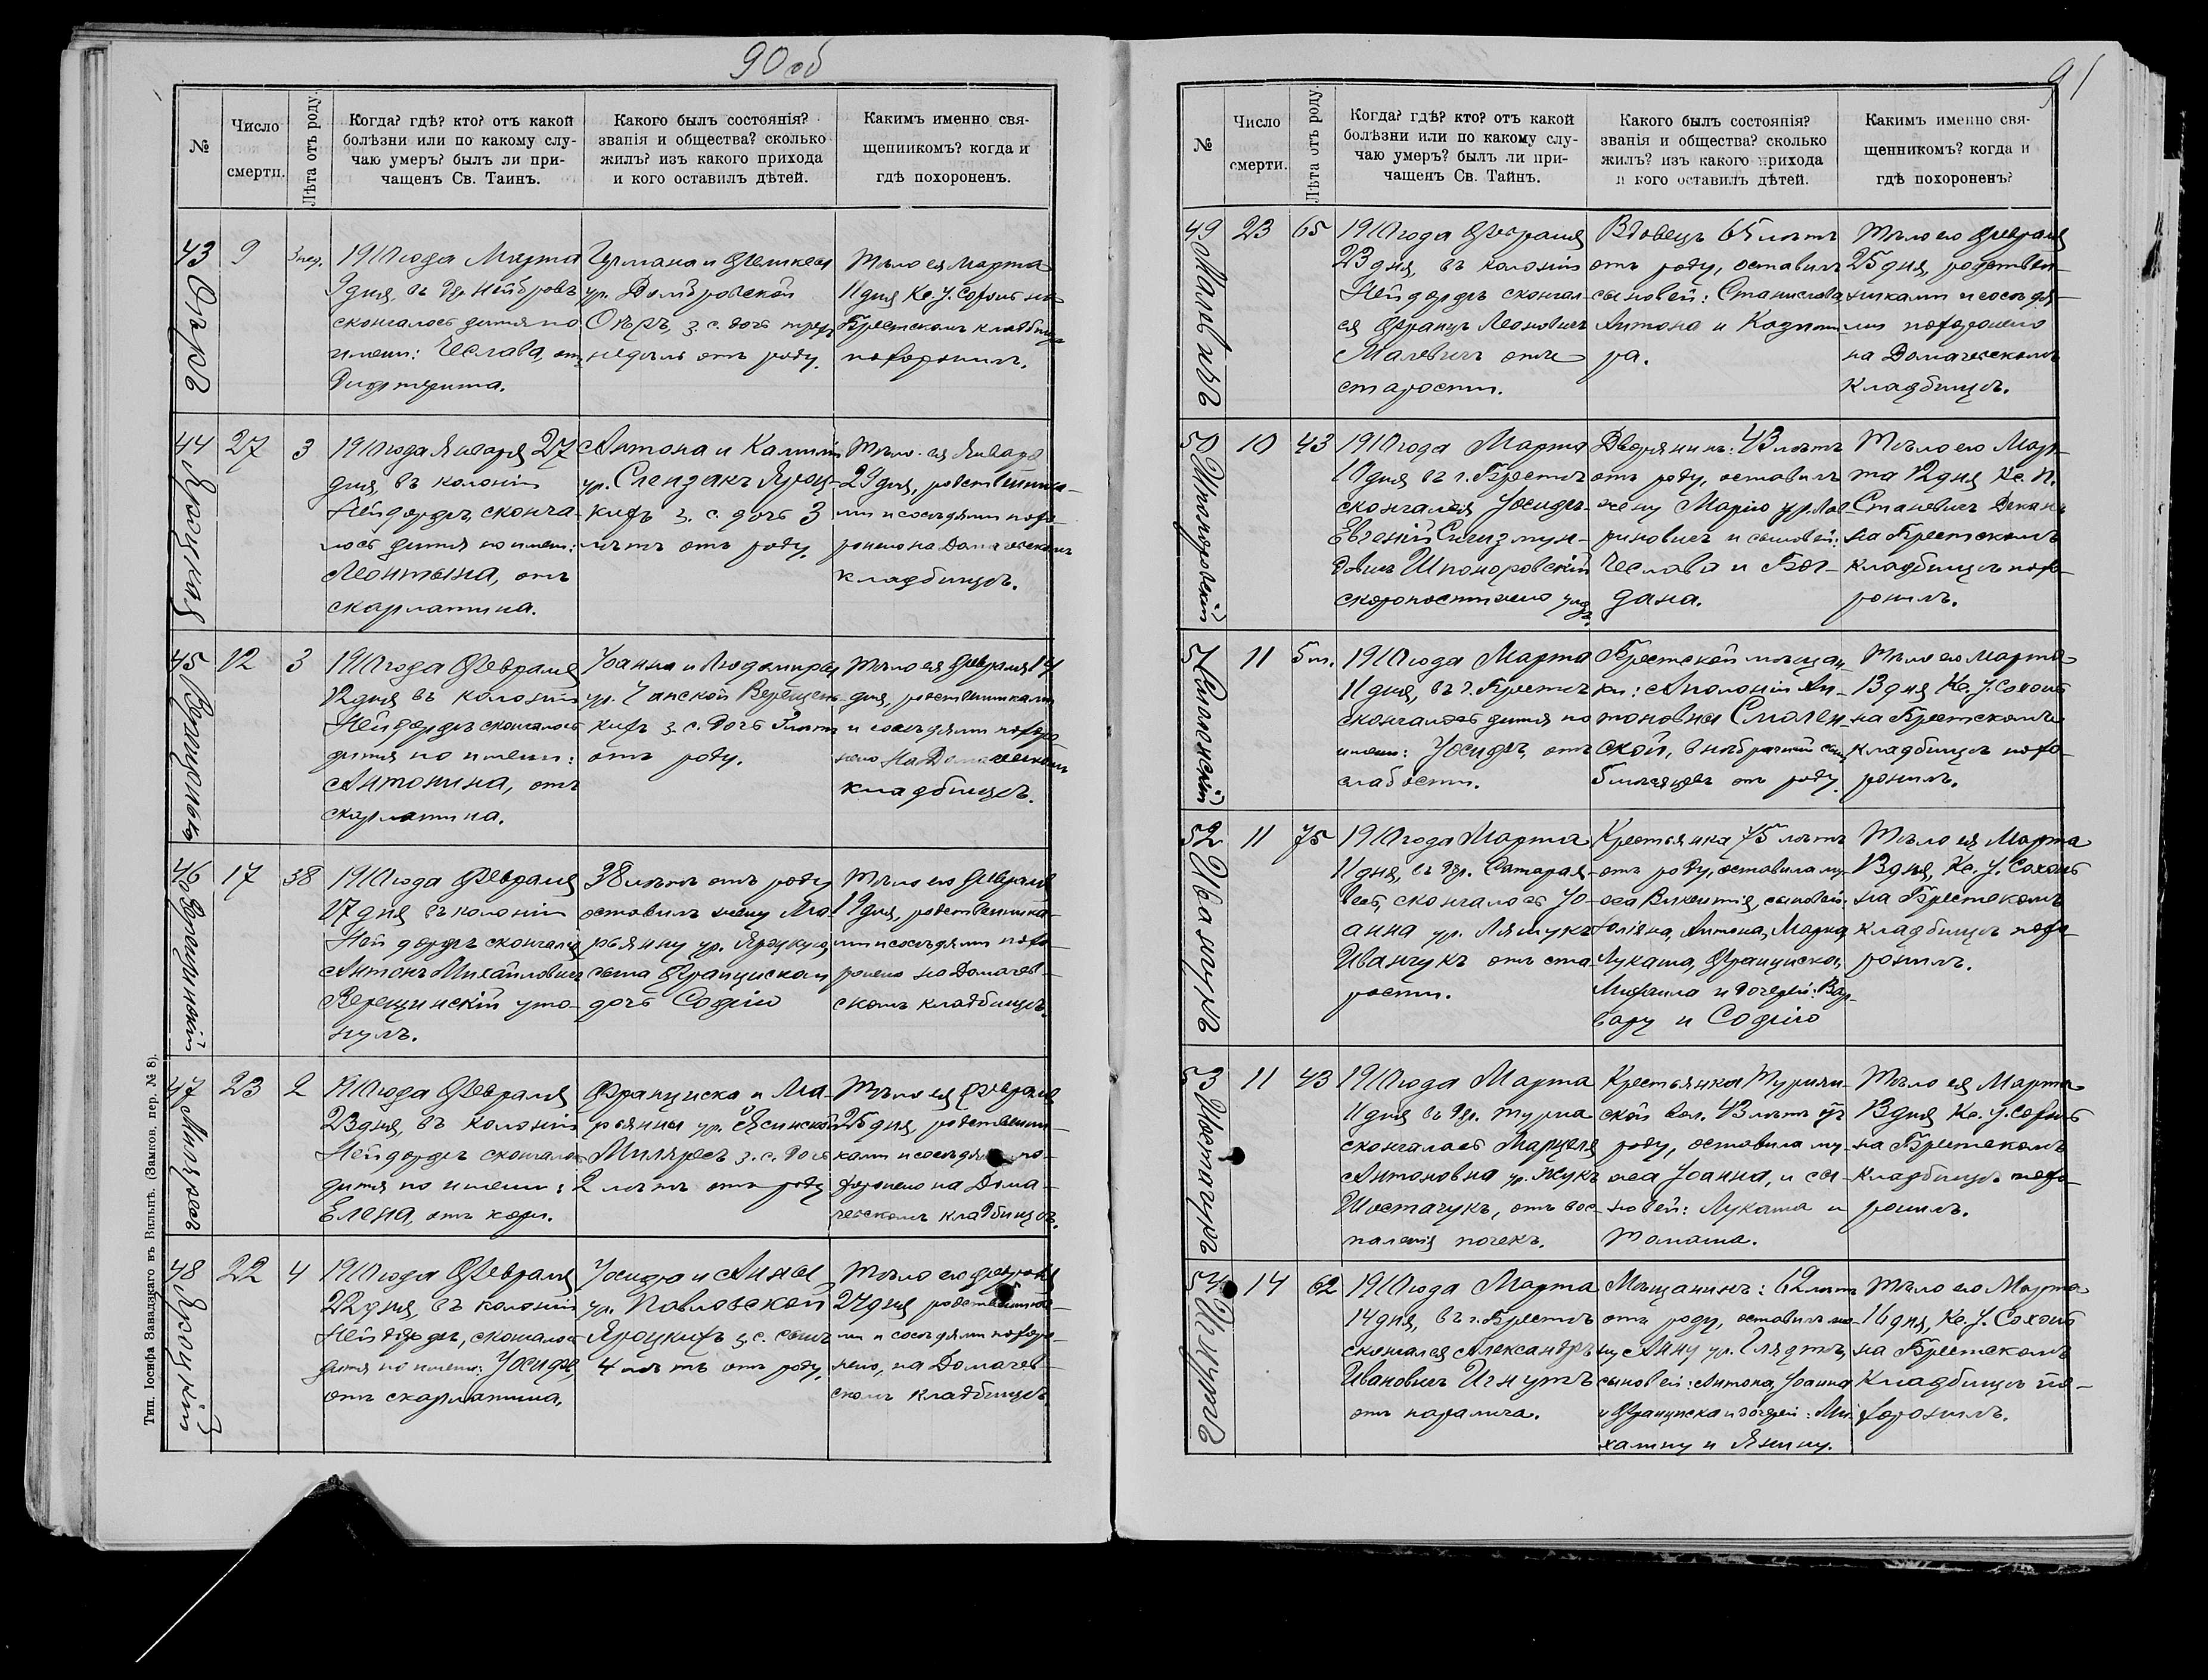 90 об
№
Число
смерти.
Лѣта отъ роду.
Когда? гдѣ? кто? отъ какой
болѣзни или по какому слу-
чаю умеръ? былъ ли при-
чащенъ Св. Таинъ.
Какого былъ состоянія?
званія и общества? сколько
жилъ? изъ какого прихода
и кого оставилъ дѣтей.
Какимъ именно свя-
щенникомъ? когда и
гдѣ похороненъ.
43
9
3 нед.
1910 года Марта
9 дня, въ
скончалось дитя по
имени: Чеслава, отъ
Дифтерита.
Германа и Фелікси
ур. Домбровской
з. с. дочь трехъ
недѣль отъ роду.
Тѣло ея Марта
11 дня Кс. І. Сохонь на
Брестскомъ кладбищѣ
похоронилъ.
44 Яроцкая
27
3
1910 года Января 27
дня, въ колоніи
Нейдорфъ, сконча-
лось дитя по имени:
Леонтына, отъ
скарлатина.
Антона и Камиліи
ур. Слензакъ Яроц-
кихъ з. с. дочь 3
лѣтъ отъ роду.
Тѣло ея Января
29 дня, родственника-
ми и сосѣдями похо-
ронено на Домачевскомъ
кладбищѣ.
45
12
3
1910 года Февраля
12 дня въ колоніи
Нейдорфъ скончалось
дитя по имени:
Антонина, отъ
скарлатина.
Іоанна и Людомиры
ур.
кихъ з. с. дочь 3 лѣтъ
отъ роду.
Тѣло ея Февраля 14
дня, родственниками
и сосѣдями похоро
нено на Домачевскомъ
кладбищѣ.
46 Верещинскій
17
38
1910 года Февраля
17 дня въ колоніи
Нейдорфъ скончался
Антонъ Михайловичъ
Верещинскій уто-
нулъ.
38 лѣтъ отъ роду
оставилъ жену Ма-
рьянну ур. Яроцкую,
сына Францискаи
дочь Софію
Тѣло его Февраля
19 дня, родственника-
ми и сосѣдями похо-
ронено на Домачев-
скомъ кладбищѣ.
47
23
2
1910 года Февраля
23 дня, въ колоніи
Нейдорфъ скончалось
дитя по имени:
Елена, отъ кори.
Франциска и Ма-
рьянны ур. Ясинской
Милярсъ з. с. дочь
2 лѣтъ отъ роду
Тѣло ея Февраля
25 дня, родственни-
ками и сосѣдями по-
хоронено на Дома-
чевскомъ кладбищѣ.
48 Яроцкій
22
4
1910 года Февраля
22 дня, въ колоніи
Нейдорфъ, скончалось
дитя по имени: Іосифъ,
отъ скарлатина.
Іосифа и Анны
ур. Павловской
Яроцкихъ з. с. сынъ
4 лѣтъ отъ роду.
Тѣло его Февраля
24 дня родственника-
ми и сосѣдями похоро-
нено, на Домачев-
скомъ кладбищѣ
Тип. Іосифа Завадзкаго въ Вильнѣ. (Замков. пер. № 8).
91
№
Число
смерти.
Лѣта отъ роду.
Когда? гдѣ? кто? отъ какой
болѣзни или по какому слу-
чаю умеръ? былъ ли при-
чащенъ Св. Тайнъ.
Какого былъ состоянія?
званія и общества? сколько
жилъ? изъ какого прихода
и кого оставилъ дѣтей.
Какимъ именно свя-
щенникомъ? когда и
гдѣ похороненъ?
49 Малевичъ
23
65
1910 года Февраля
23 дня, въ колоніи
Нейдорфъ скончал-
ся Францъ Леоновичъ
Малевичъ отъ
старости.
Вдовецъ 65 лѣтъ
отъ роду, оставилъ
сыновей: Станислава,
Антона и Казими-
ра.
Тѣло его Февраля
25 дня, родствен-
никами и сосѣдя-
ми похоронено
на Домачевскомъ
кладбищѣ.
50 Шпоноровскій
10
43
1910 года Марта
10 дня въ г. Брестѣ
скончался Іосифъ-
Евгеній Сигизмун-
довичъ Шпоноровскій
скоропостижно
Дворянинъ: 43 лѣтъ
отъ роду, оставилъ
жену Марію ур.
риновичъ и сыновей:
Чеслава и Бог-
дана.
Тѣло его Мар-
та 12 дня Кс. П.
Станевичъ Деканъ
на Брестскомъ
кладбищѣ похо-
ронилъ.
51 Смоленскій
11
5 м.
1910 года Марта
11 дня, въ г. Брестѣ
скончалось дитя по
имени: Іосифъ, отъ
слабости.
Брестской мѣщан-
ки: Аполоніи Ан-
тоновны Смолен-
ской, внѣбрачный сынъ
5 мѣсяцевъ отъ роду.
Тѣло его Марта
13 дня Кс. І. Сохонь
на Брестскомъ
кладбищѣ похо-
ронилъ.
52 Иванчукъ
11
75
1910 года Марта
11 дня, въ др. Старая-
Весь, скончалась Іо-
анна ур. Лящукъ
Иванчукъ отъ ста-
рости.
Крестьянка 75 лѣтъ
отъ роду, оставила му-
жа Викентія, сыновей:
Юліана, Антона, Марка,
Лукаша, Франциска,
Михаила и дочерей: Вар-
вару и Софію
Тѣло ея Марта
13 дня, Кс. І. Сохонь
на Брестскомъ
кладбищѣ похо-
ронилъ.
53 Шостачукъ
11
43
1910 года Марта
11 дня въ др. Турна
скончалась Марцеля
Антоновна ур. Жукъ
Шостачукъ, отъ вос-
паленія почекъ.
Крестьянка Турнян-
ской вол. 43 лѣтъ отъ
роду, оставила му-
жа Іоанна, и сы-
новей: Лукаша и
Томаша.
Тѣло ея Марта
13 дня Кс. І. Сохонь
на Брестскомъ
кладбищѣ похо-
ронилъ.
54
14
62
1910 года Марта
14 дня, въ г. Брестѣ
скончался Александръ
Ивановичъ Игнутъ
отъ паралича.
Мѣщанинъ: 62 лѣтъ
отъ роду, оставилъ же-
ну Анну ур.
сыновей: Антона, Іоанна
и Франциска и дочерей: Ми-
халину и Янину.
Тѣло его Марта
16 дня, Кс. І. Сохонь
на Брестскомъ
Кладбищѣ по-
хоронилъ.